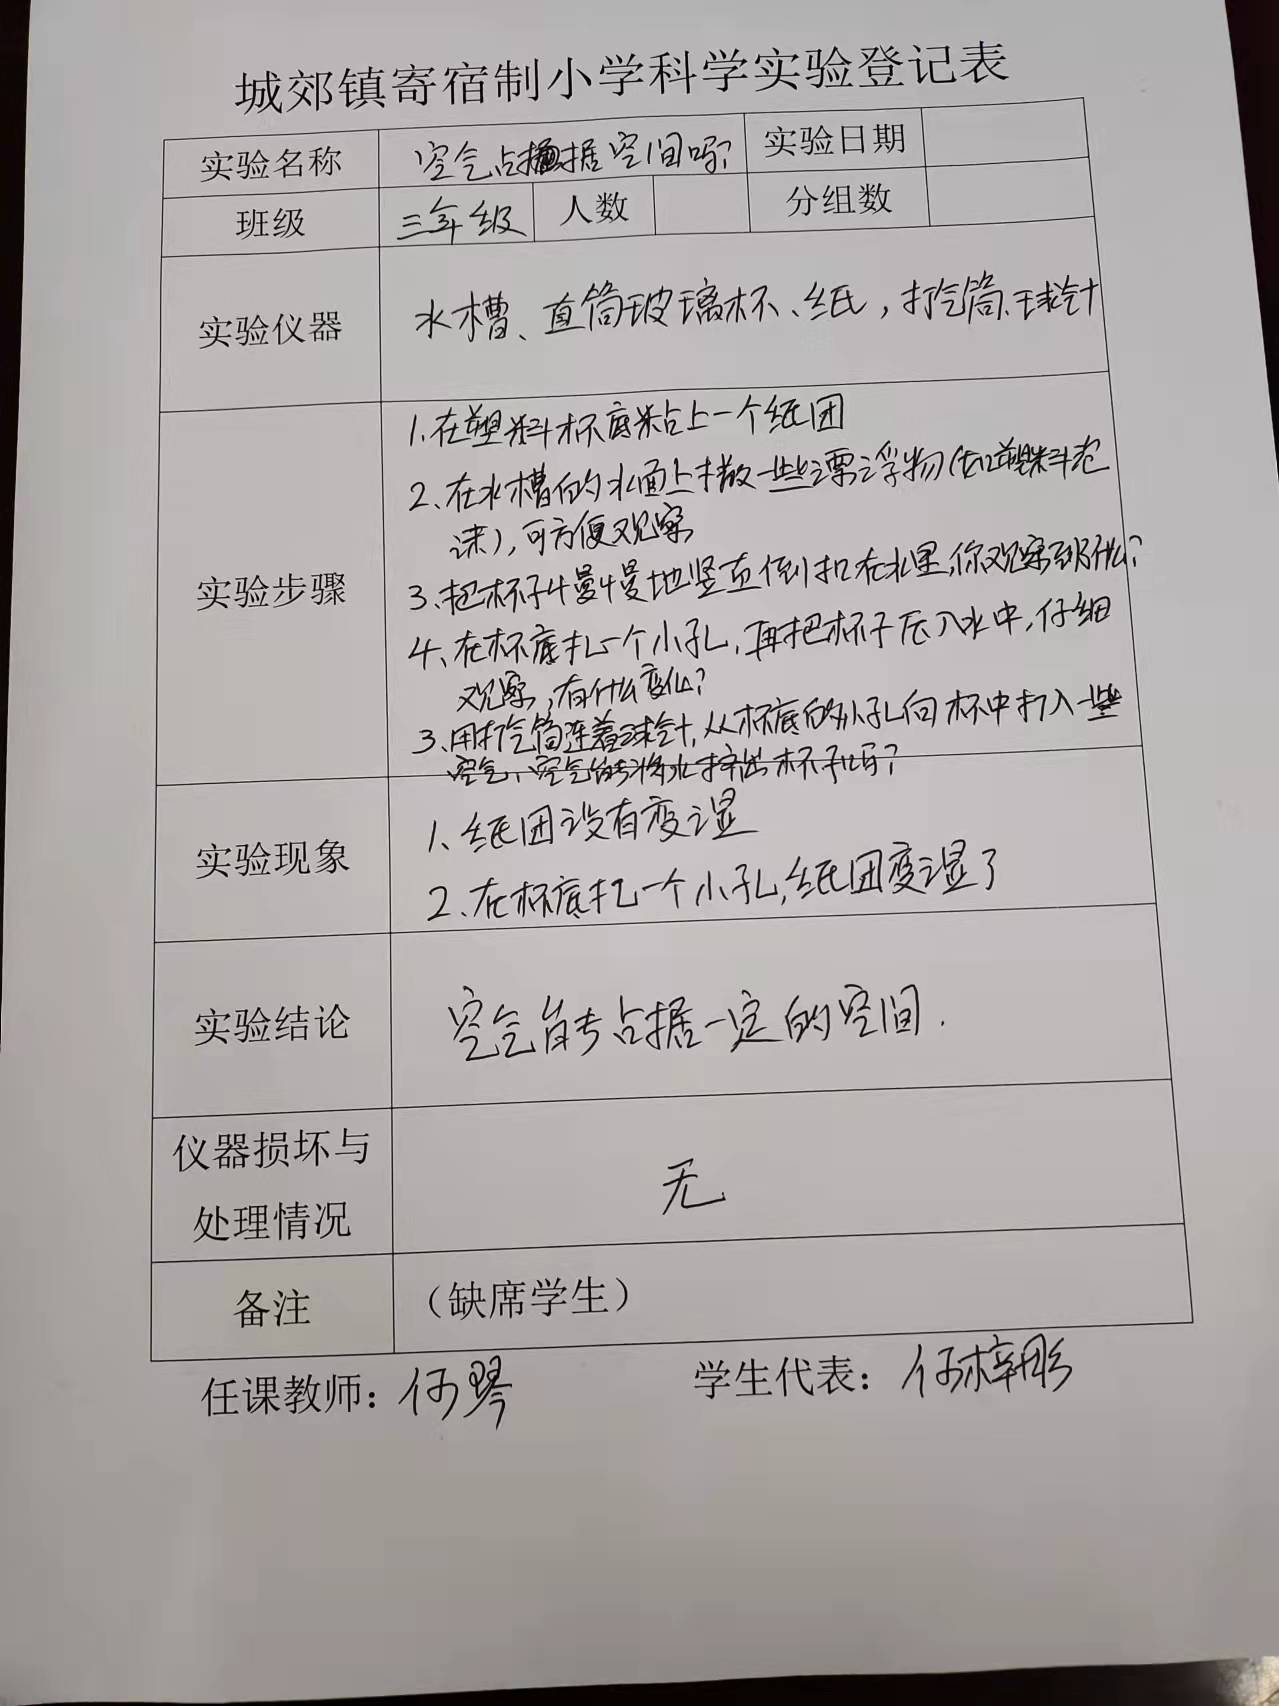 城郊镇寄宿制小学科学实验登记表
实验名称 空气占据空间吗? 实验日期
班级 三年级 人数 分组数
实验仪器 水槽、直筒玻璃杯、纸，打气筒、球针
实验步骤
1.在塑料杯底粘上一个纸团
2.在水槽的水面上撒一些漂浮物(如塑料泡
沫),可方便观察
3.把杯子慢慢地竖直倒扣在水里,你观察到什么?
4、在杯底扎一个小孔,再把杯子压入水中,仔细
观察,有什么变化?
3.用打气筒连着球针,从杯底的小孔向杯中打入一些
空气,空气能将水挤出杯子吗?
实验现象
1、纸团没有变湿
2、在杯底扎一个小孔,纸团变湿了
实验结论 空气能占据一定的空间.
仪器损坏与
处理情况
无
备注 （缺席学生）
任课教师：何琴 学生代表：何梓彤